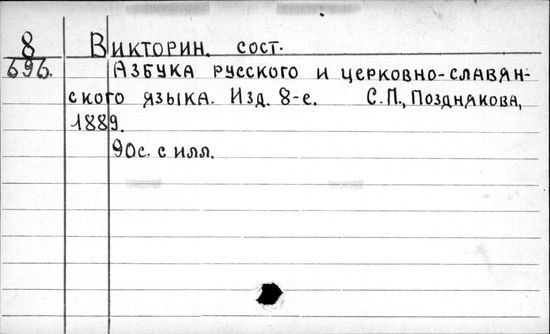 8
696.
Викторин. сост.
Азбука русского и церковно-славян-
ского языка. Изд. 8-е. С.П., Позднякова,
1889.
90с. с илл.